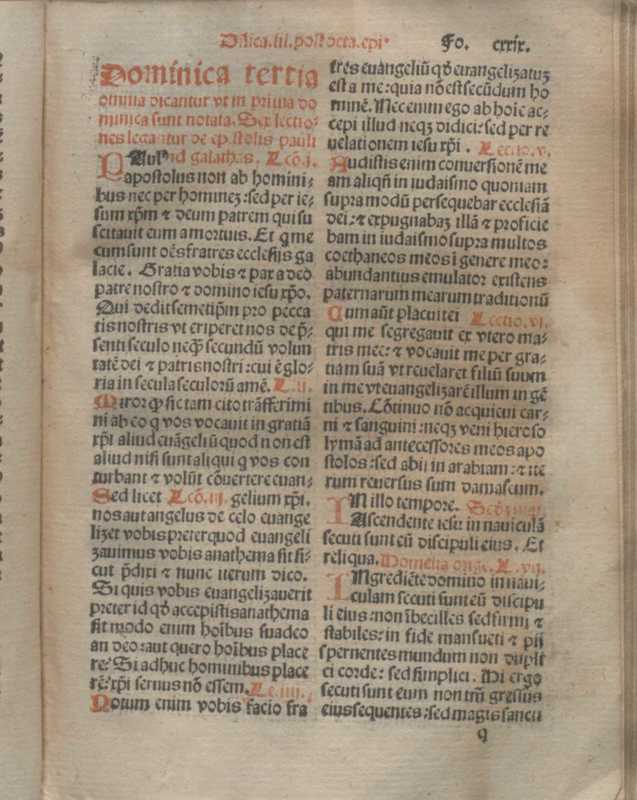 Dñica .iii. post octa. epi. Fo. cxxix.
Dominica tertia
omnia dicantur vt in prima do
minica sunt notata. Sex lectio-
nes legantur de epistolis pauli
PAulus ad galathas. Lcõ. j.
apostolus non ab homini-
bus nec per hominez: sed per ie-
sum xpm̃ & deum patrem qui su
scitauit eum a mortuis. Et q̃ me
cum sunt oẽs fratres ecclesijs ga
lacie. Gratia vobis & pax a deo
patre nostro & domino iesu xpõ.
Qui dedit semetipm̃ pro pecca
tis nostris vt eriperet nos de p̃-
senti seculo neq̃ secundũ volun
tatẽ dei & patris nostri: cui ẽ glo-
ria in secula seculorũ amẽ. L. ii.
Miror q̃ sic tam cito trãsferimi
ni ab eo q̃ vos vocauit in gratiã
xpĩ aliud euãgeliũ quod non est
aliud nisi sunt aliqui q̃ vos con
turbant & volũt cõuertere euan-
Sed licet Lcõ. iii. gelium xpĩ.
nos aut angelus de celo euange
lizet vobis preterquod euangeli
zauimus vobis anathema sit si-
cut p̃dixi & nunc iterum dico.
Si quis vobis euangelizauerit
preter id qđ accepistis anathema
sit modo enim hoĩbus suadeo
an deo: aut quero hoĩbus place
re? Si adhuc hominibus place
rẽ: xpĩ seruus nõ essem. Le. iiij.
Notum enim vobis facio fra
tres euangeliũ qđ euangelizatuz
est a me: quia nõ est secũdum ho
minẽ. Nec enim ego ab hoĩe ac-
cepi illud neqz didici: sed per re
uelationem iesu xpĩ. Lectio. v.
Audistis enim conuersionẽ me
am aliqñ in iudaismo quoniam
supra modũ persequebar ecclesiã
dei: & expugnabaz illã & proficie
bam in iudaismo supra multos
coethaneos meos ĩ genere meo:
abundantius emulator existens
paternarum mearum traditionũ
Cum aũt placuit ei Lectio. vi.
qui me segregauit ex vtero ma-
tris mee: & vocauit me per gra-
tiam suã vt reuelaret filiũ suum
in me vt euangelizarẽ illum in gẽ
tibus. Cõtinuo nõ acquieui car-
ni & sanguini: neqz veni hieroso
lymã ad antecessores meos apo
stolos: sed abij in arabiam: & ite
rum reuersus sum damascum.
IN illo tempore.
Ascendente iesu in nauiculã
secuti sunt eũ discipuli eius. Et
reliqua. Homelia orige. L. vii.
INgrediẽte domino in naui-
culam secuti sunt eũ discipu
li eius: non ĩbecilles sed firmi &
stabiles: in fide mansueti & pij
spernentes mundum non dupli
ci corde: sed simplici. Hi ergo
secuti sunt eum non tm̃ gressus
eius sequentes: sed magis sancti
q